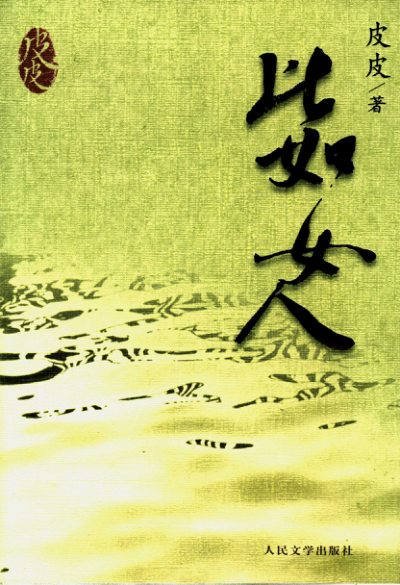 皮皮
皮皮/著
比如
女人
人民文学出版社